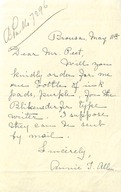 Bronson May 18
Dear Mr. Peet,
Will you
kindly order for me
one bottles of ink
pads, purple. For the
Blickensderfer type
writer. I suppose
they can be sent
by mail.
Sincerely,
Annie T.